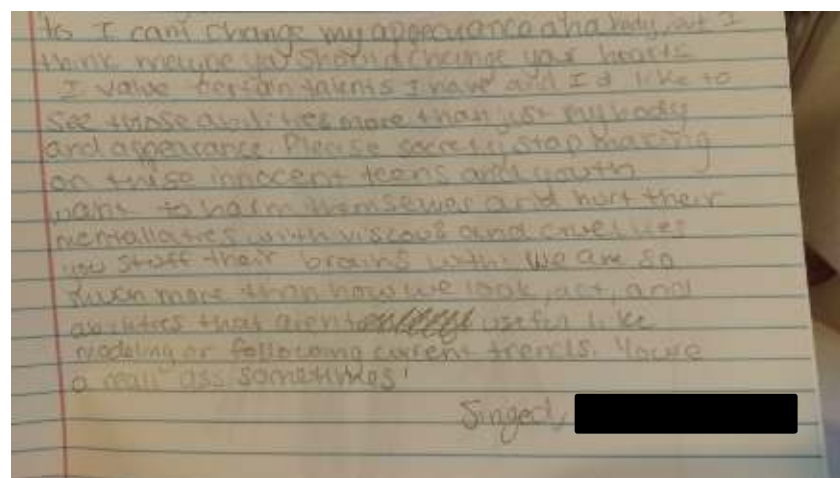 to I can't change my appearance and a body, but I
think maybe you should change your hearts
I value certain talents I have and I'd like to
see those abilities more than just my body
and appearance. Please society stop making
on these innocent teens and youth
want to harm themselves and hurt their
mentallaties with viscous and cruel lies
you stuff their brains with. We are so
much more than how we look, act, and
abilities that arent useful like
modeling or following current trends. You're
a reall ass sometimes!
Singed,